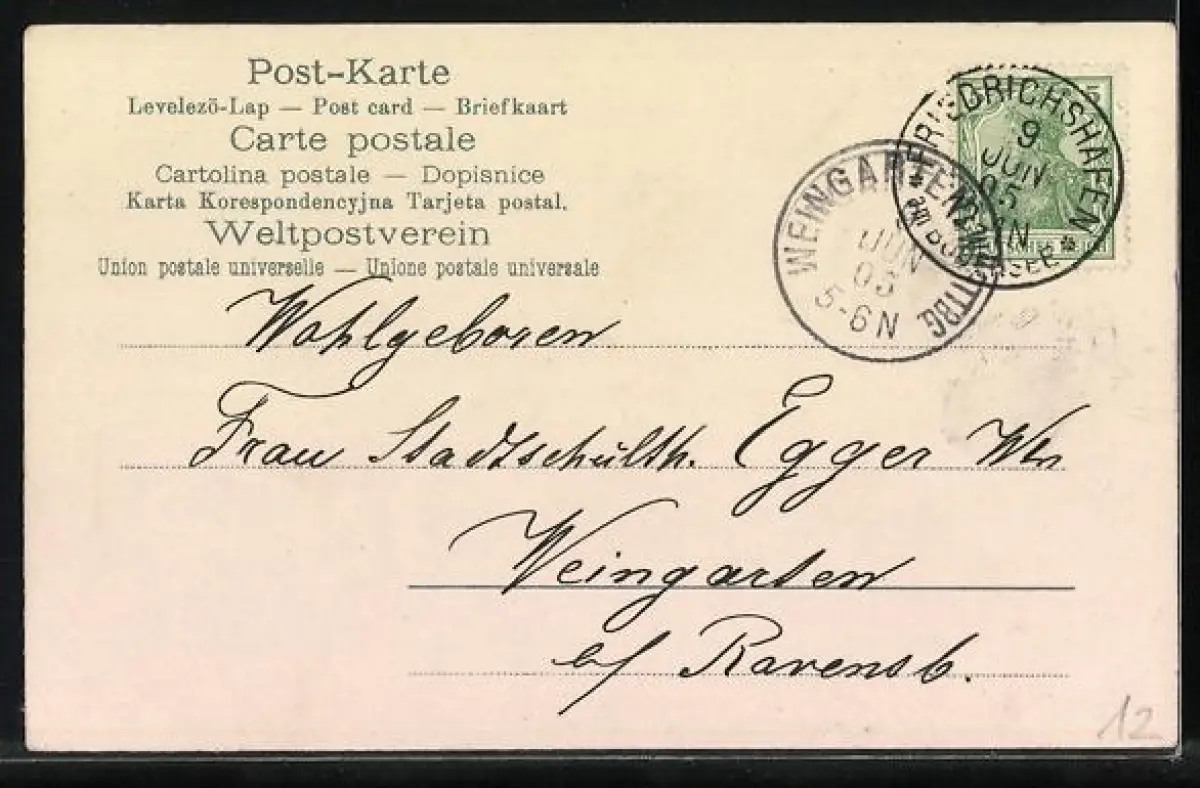 Post-Karte
Levelező-Lap — Post card — Briefkaart
Carte postale
Cartolina postale — Dopisnice
Karta Korespondencyjna Tarjeta postal.
Weltpostverein
Union postale universelle — Unione postale universale
FRIEDRICHSHAFEN
9
JUN
05
BODENSEE
WEINGARTEN
WTTBG.
JUN
05
5-6N
Wohlgeboren
Frau Stadtschulth. Egger
Weingarten
b/ Ravensb.
12